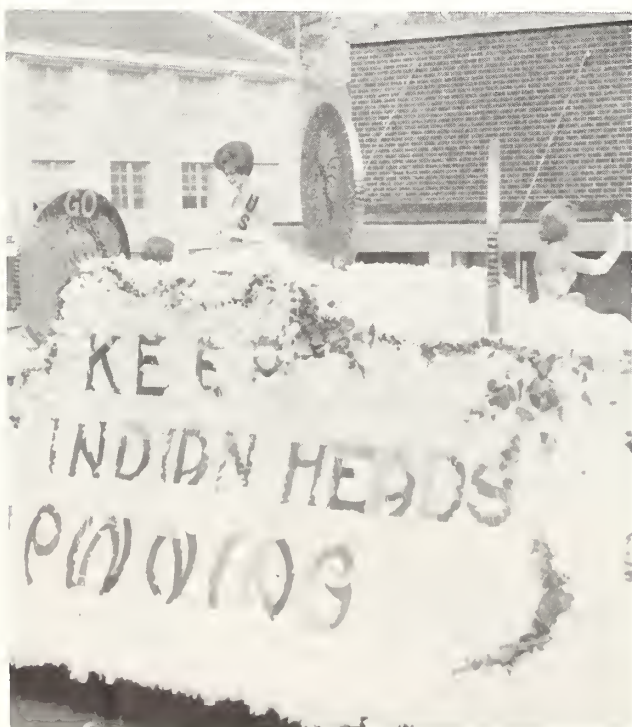 GO
US
KEEP
INDIAN HEADS